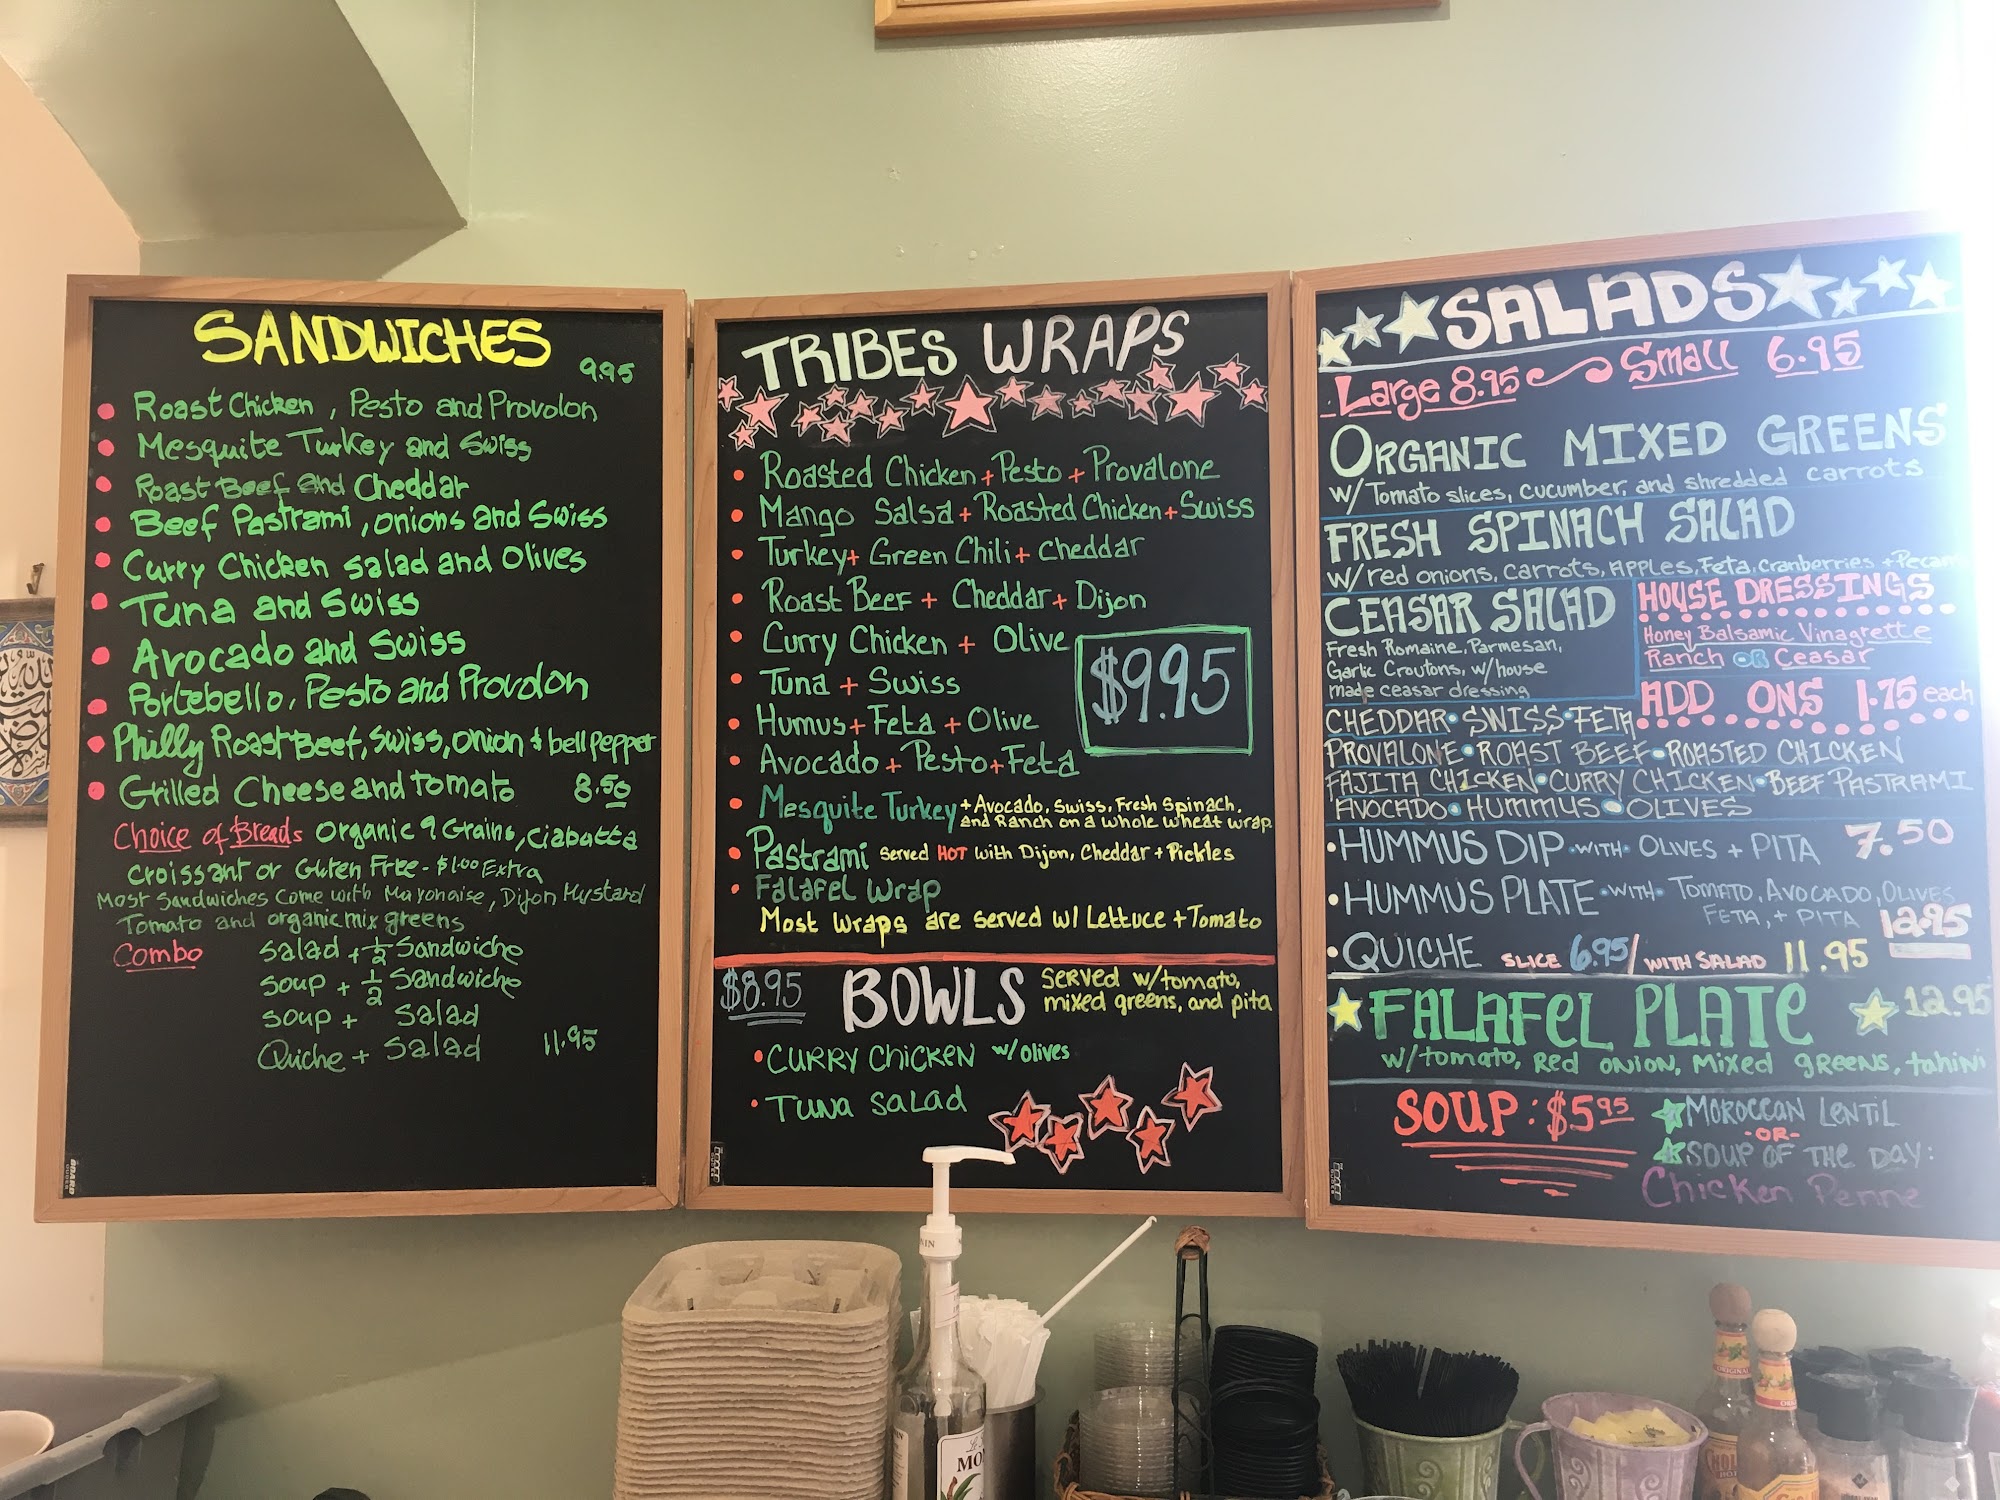 SANDWICHES
9.95
Roast Chicken, Pesto and Provolon
Mesquite Turkey and Swiss
Roast Beef and Cheddar
Beef Pastrami, onions and Swiss
Curry Chicken salad and Olives
Tuna and Swiss
Avocado and Swiss
Portebello, Pesto and Provolon
Philly Roast Beef, Swiss, onion & bell pepper
Grilled Cheese and tomato 8.50
Choice of Breads Organic 9 Grains, Ciabatta
Croissant or Gluten Free - $1.00 Extra
Most Sandwiches Come with Mayonaise, Dijon Mustard
Tomato and organic mix greens
Combo salad + 1/2 Sandwiche
Soup + 1/2 Sandwiche
Soup + Salad
Quiche + Salad 11.95
TRIBES WRAPS
Roasted Chicken + Pesto + Provalone
Mango Salsa + Roasted Chicken + Swiss
Turkey + Green Chili + Cheddar
Roast Beef + Cheddar + Dijon
Curry Chicken + Olive
$9.95
Tuna + Swiss
Humus + Feta + Olive
Avocado + Pesto + Feta
Mesquite Turkey + Avocado, Swiss, Fresh Spinach,
and Ranch on a whole wheat wrap
Pastrami Served HOT with Dijon, Cheddar + Pickles
Falafel Wrap
Most wraps are served w/ Lettuce + Tomato
$8.95 BOWLS Served w/tomato,
mixed greens, and pita
CURRY CHICKEN w/ olives
TUNA SALAD
SALADS
Large 8.95 Small 6.95
ORGANIC MIXED GREENS
w/ Tomato slices, cucumber, and shredded carrots
FRESH SPINACH SALAD
w/ red onions, carrots, apples, Feta, cranberries + Pecans
CEASAR SALAD
Fresh Romaine, Parmesan,
Garlic Croutons, w/house
made ceasar dressing
HOUSE DRESSINGS
Honey Balsamic Vinagrette
Ranch or Ceasar
ADD ONS 1.75 each
CHEDDAR • SWISS • FETA
PROVALONE • ROAST BEEF • ROASTED CHICKEN
FAJITA CHICKEN • CURRY CHICKEN • BEEF PASTRAMI
AVOCADO • HUMMUS • OLIVES
• HUMMUS DIP • WITH • OLIVES + PITA 7.50
• HUMMUS PLATE • WITH • TOMATO, AVOCADO, OLIVES
FETA, + PITA 12.95
• QUICHE SLICE 6.95 / WITH SALAD 11.95
FALAFEL PLATE 12.95
w/tomato, Red onion, mixed greens, tahini
SOUP: $5.95 MOROCCAN LENTIL
-OR-
SOUP OF THE DAY:
Chicken Penne